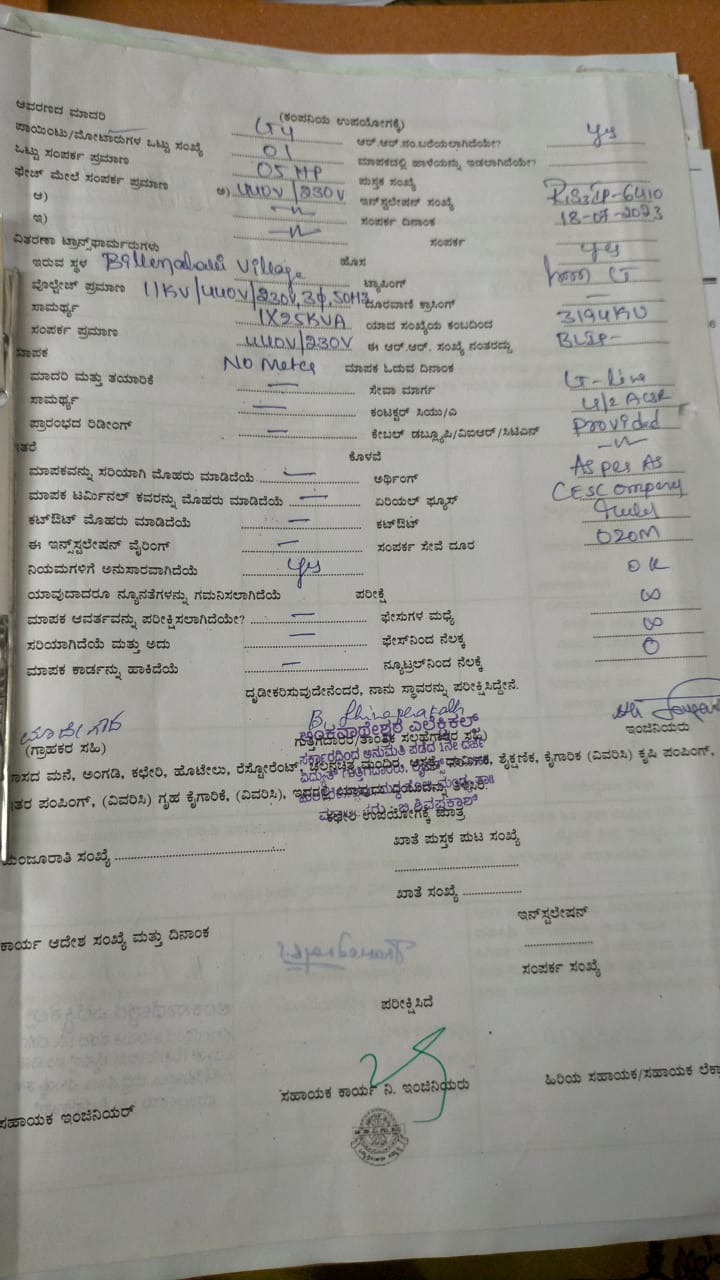 (ಕಂಪನಿಯ ಉಪಯೋಗಕ್ಕೆ)
ಆವರಣದ ಮಾದರಿ LT4 ಆರ್.ಆರ್.ನಂ.ಬರೆಯಲಾಗಿದೆಯೇ? Yes
ಪಾಯಿಂಟು/ಮೋಟಾರುಗಳ ಒಟ್ಟು ಸಂಖ್ಯೆ 01 ಮಾಪಕದಲ್ಲಿ ಹಾಳೆಯನ್ನು ಇಡಲಾಗಿದೆಯೇ?
ಒಟ್ಟು ಸಂಪರ್ಕ ಪ್ರಮಾಣ 05 HP ಪುಸ್ತಕ ಸಂಖ್ಯೆ
ಫೇಚ್ ಮೇಲೆ ಸಂಪರ್ಕ ಪ್ರಮಾಣ ಅ) 440V/230V ಇನ್‌ಸ್ಟಲೇಷನ್ ಸಂಖ್ಯೆ 6410
ಆ) ಸಂಪರ್ಕ ದಿನಾಂಕ 18-07-2023
ಇ) ಸಂಪರ್ಕ
ವಿತರಣಾ ಟ್ರಾನ್ಸ್‌ಫಾರ್ಮರುಗಳು ಹೊಸ Yes
ಇರುವ ಸ್ಥಳ Village ಟ್ಯಾಪಿಂಗ್ from LT
ವೋಲ್ಟೇಜ್ ಪ್ರಮಾಣ 11KV/440V/230V, 3Φ, 50HZ ದೂರವಾಣಿ ಕ್ರಾಸಿಂಗ್ —
ಸಾಮರ್ಥ್ಯ 1X25KVA ಯಾವ ಸಂಖ್ಯೆಯ ಕಂಬದಿಂದ
ಸಂಪರ್ಕ ಪ್ರಮಾಣ 440V/230V ಈ ಆರ್.ಆರ್. ಸಂಖ್ಯೆ ನಂತರದ್ದು
ಮಾಪಕ No Meter ಮಾಪಕ ಓದುವ ದಿನಾಂಕ
ಮಾದರಿ ಮತ್ತು ತಯಾರಿಕೆ — ಸೇವಾ ಮಾರ್ಗ LT-line
ಸಾಮರ್ಥ್ಯ — ಕಂಟಕ್ಟರ್ ಸಿಯು/ಎ ACSR
ಪ್ರಾರಂಭದ ರಿಡೀಂಗ್ — ಕೇಬಲ್ ಡಬ್ಲ್ಯೂಪಿ/ವಿಐಆರ್/ಸಿಟಿಎಸ್ Provided
ಇತರೆ ಕೊಳವೆ
ಮಾಪಕವನ್ನು ಸರಿಯಾಗಿ ಮೊಹರು ಮಾಡಿದೆಯೆ — ಅರ್ಥಿಂಗ್ As per As
ಮಾಪಕ ಟರ್ಮಿನಲ್ ಕವರನ್ನು ಮೊಹರು ಮಾಡಿದೆಯೆ — ಏರಿಯಲ್ ಫ್ಯೂಸ್ CESC Company
ಕಟ್‌ಔಟ್ ಮೊಹರು ಮಾಡಿದೆಯೆ — ಕಟ್‌ಔಟ್ Rules
ಈ ಇನ್‌ಸ್ಟಲೇಷನ್ ವೈರಿಂಗ್ — ಸಂಪರ್ಕ ಸೇವೆ ದೂರ 020M
ನಿಯಮಗಳಿಗೆ ಅನುಸಾರವಾಗಿದೆಯೆ Yes
ಯಾವುದಾದರೂ ನ್ಯೂನತೆಗಳನ್ನು ಗಮನಿಸಲಾಗಿದೆಯೆ ಪರೀಕ್ಷೆ OK
ಮಾಪಕ ಆವರ್ತವನ್ನು ಪರೀಕ್ಷಿಸಲಾಗಿದೆಯೇ? — ಫೇಸುಗಳ ಮಧ್ಯೆ ∞
ಸರಿಯಾಗಿದೆಯೆ ಮತ್ತು ಅದು — ಫೇಸ್‌ನಿಂದ ನೆಲಕ್ಕೆ ∞
ಮಾಪಕ ಕಾರ್ಡನ್ನು ಹಾಕಿದೆಯೆ — ನ್ಯೂಟ್ರಲ್‌ನಿಂದ ನೆಲಕ್ಕೆ 0
ದೃಡೀಕರಿಸುವುದೇನೆಂದರೆ, ನಾನು ಸ್ಥಾವರನ್ನು ಪರೀಕ್ಷಿಸಿದ್ದೇನೆ.
(ಗ್ರಾಹಕರ ಸಹಿ) ಗುತ್ತಿಗೆದಾರರ/ತಾಂತ್ರಿಕ ಸಲಹೆಗಾರರ ಸಹಿ) ಇಂಜಿನಿಯರು
ಎಲೆಕ್ಟ್ರಿಕಲ್ಸ್
ಸರ್ಕಾರದಿಂದ ಅನುಮತಿ ಪಡೆದ 1ನೇ ದರ್ಜೆ
ಬಿ.ಶಿವಪ್ರಕಾಶ್
ಮನೆ, ಅಂಗಡಿ, ಕಛೇರಿ, ಹೊಟೇಲು, ರೆಸ್ಟೋರೆಂಟ್, ಚಲನಚಿತ್ರ ಮಂದಿರ, ಆಸ್ಪತ್ರೆ, ಧಾರ್ಮಿಕ, ಶೈಕ್ಷಣಿಕ, ಕೈಗಾರಿಕ (ವಿವರಿಸಿ) ಕೃಷಿ ಪಂಪಿಂಗ್,
ಇತರ ಪಂಪಿಂಗ್, (ವಿವರಿಸಿ) ಗೃಹ ಕೈಗಾರಿಕೆ, (ವಿವರಿಸಿ), ಇದರಲ್ಲಿ ಯಾವುದು ಎಂಬುದನ್ನು ತಿಳಿಸಿರಿ.
ಕಛೇರಿ ಉಪಯೋಗಕ್ಕೆ ಮಾತ್ರ
ಮಂಜೂರಾತಿ ಸಂಖ್ಯೆ ಖಾತೆ ಪುಸ್ತಕ ಪುಟ ಸಂಖ್ಯೆ
ಖಾತೆ ಸಂಖ್ಯೆ
ಇನ್‌ಸ್ಟಲೇಷನ್
ಕಾರ್ಯ ಆದೇಶ ಸಂಖ್ಯೆ ಮತ್ತು ದಿನಾಂಕ
ಸಂಪರ್ಕ ಸಂಖ್ಯೆ
ಪರೀಕ್ಷಿಸಿದೆ
ಸಹಾಯಕ ಇಂಜಿನಿಯರ್ ಸಹಾಯಕ ಕಾರ್ಯ ನಿ. ಇಂಜಿನಿಯರು ಹಿರಿಯ ಸಹಾಯಕ/ಸಹಾಯಕ